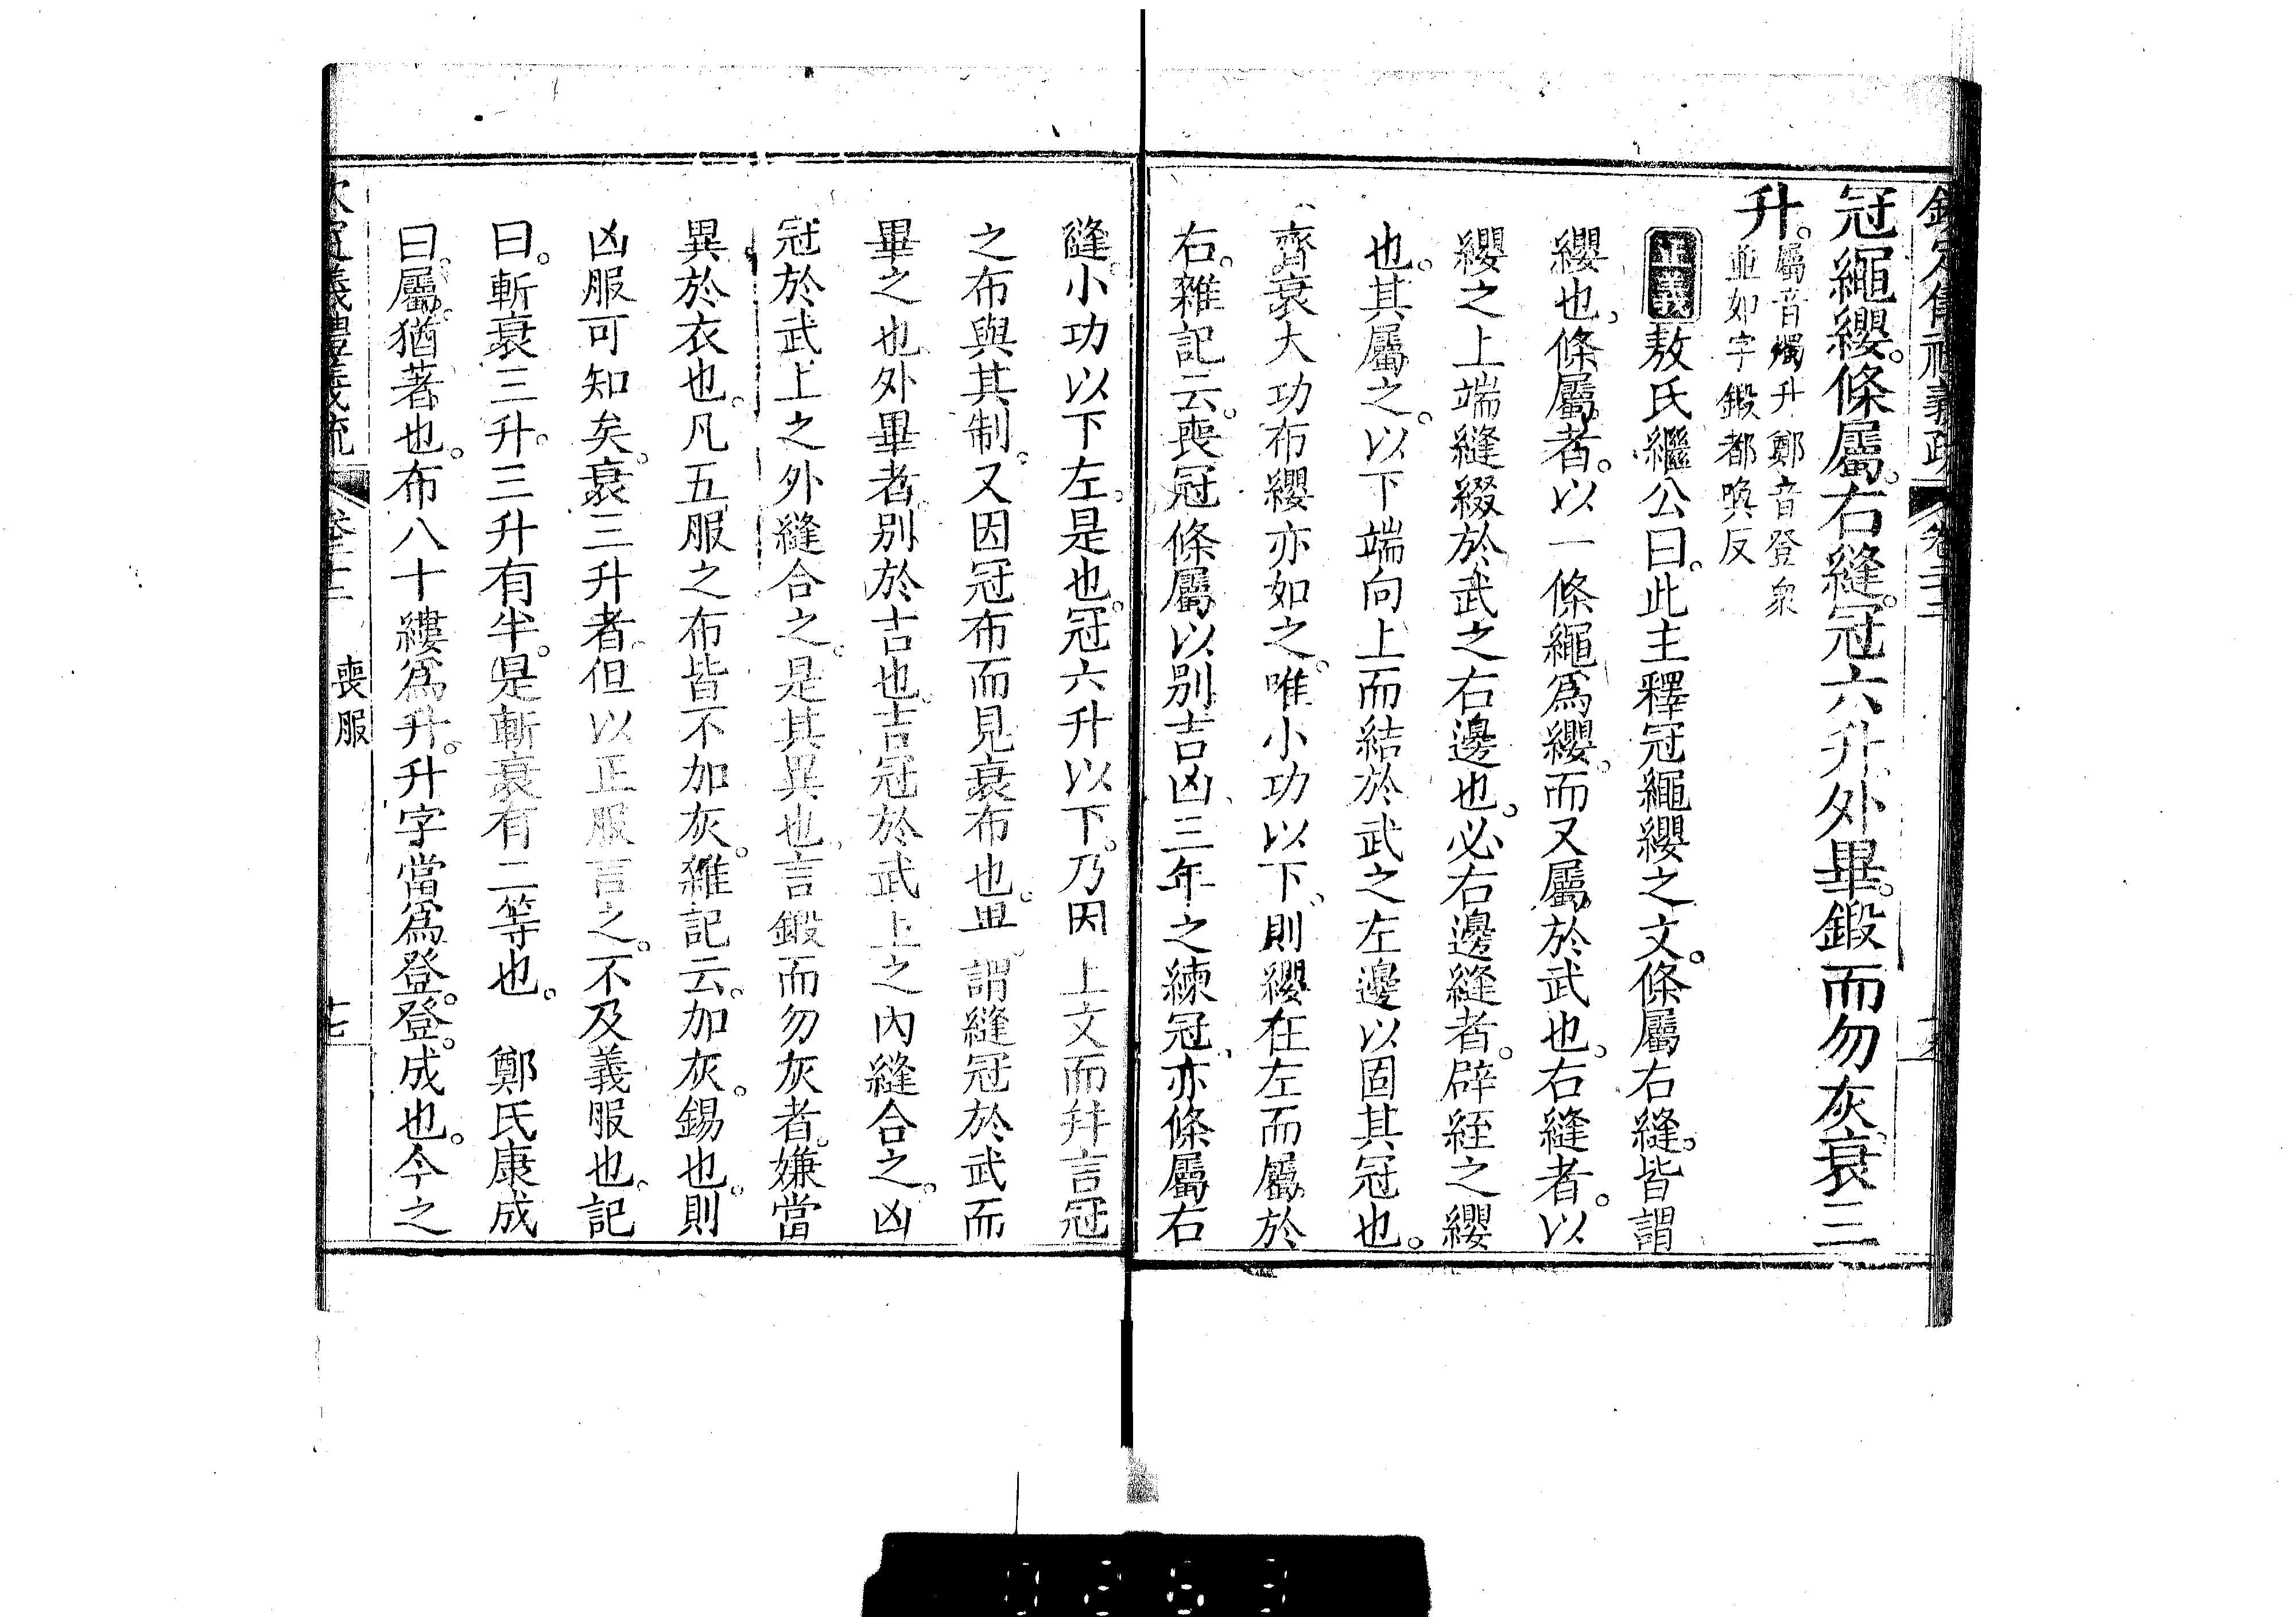 冠繩纓。條屬。右縫。冠六升外畢。鍛而勿灰。衰三
升。屬音燭升鄭音登衆
並如字鍛都喚反
正義敖氏繼公曰。此主釋冠繩纓之文。條屬右縫。皆謂
纓也。條屬者。以一條繩爲纓。而又屬於武也。右縫者。以
纓之上端縫綴於武之右邊也。必右邊縫者。辟絰之纓
也。其屬之。以下端向上而結於武之左邊以固其冠也。
齊衰大功布纓亦如之。唯小功以下、則纓在左而屬於
右。雜記云。喪冠條屬以别吉凶、三年之練冠、亦條屬右
縫。小功以下左。是也。冠六升以下。乃因上文而幷言冠
之布與其制。又因冠布而見衰布也。畢謂縫冠於武而
畢之也外畢者。别於吉也。吉冠於武上之內縫合之。凶
冠於武上之外縫合之。是其異也。言鍛而勿灰者。嫌當
異於衣也。凡五服之布皆不加灰。雜記云。加灰。錫也。則
凶服可知矣。衰三升者。但以正服言之。不及義服也。記
曰。斬衰三升。三升有半。是斬衰有二等也。 鄭氏康成
曰。屬。猶著也。布八十縷爲升。升字當爲登。登。成也。今之
喪服
十七